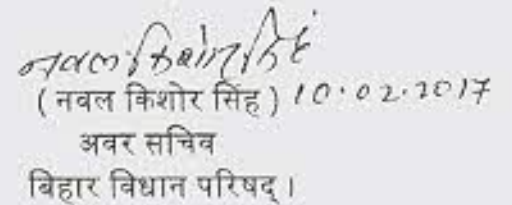 नवल किशोर सिंह
( नवल किशोर सिंह ) 10.02.2017
अवर सचिव
बिहार विधान परिषद् ।